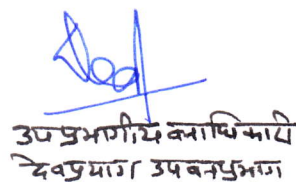 उप प्रभागीय वनाधिकारी
देवप्रयाग उपवनप्रभाग